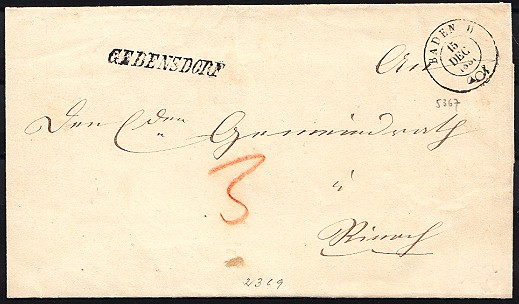 GEBENSDORF
BADEN
15
DEC
An
5367
Den
Gemeindrath
3
à
Rinach
2369